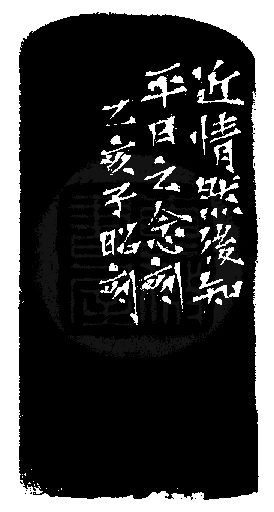 近情然後知
平日之念刻
乙亥子昭刻